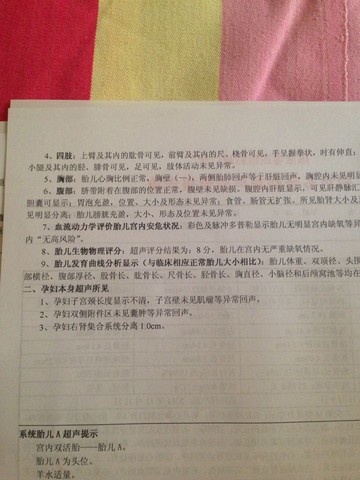 4、四肢：上臂及其内的肱骨可见，前臂及其内的尺、桡骨可见，手呈握拳状，时有伸直；
小腿及其内的胫、腓骨可见，足可见，肢体活动未见异常。
5、胸部：胎儿心胸比例正常，胸壁（一），两侧胎肺回声等于肝脏回声，胸腔内未见明显
6、腹部：脐带附着在腹部的位置正常，腹壁未见缺损。腹腔内肝脏显示，可见肝静脉汇
胆囊可显示；胃泡充盈，位置、大小及形态未见异常；食管、肠管无扩张，所见胎肾大小及
见明显分离；胎儿膀胱充盈，大小、形态及位置未见异常。
7、血流动力学评价胎儿宫内安危状况：彩色及脉冲多普勒显示胎儿无明显宫内缺氧等异
内“无高风险”。
8、胎儿生物物理评分：超声评分结果为：8分，胎儿在宫内无严重缺氧情况。
9、胎儿发育曲线分析显示（与临床相应正常胎儿大小相比）：胎儿体重、双顶径、头围
部横径、腹部厚径、股骨长、肱骨长、尺骨长、胫骨长、胸直径、小脑径和后颅窝池等均在
二、孕妇本身超声所见
1、孕妇子宫颈长度显示不清，子宫壁未见肌瘤等异常回声。
2、孕妇双侧附件区未见囊肿等异常回声。
3、孕妇右肾集合系统分离1.0cm。
系统胎儿A超声提示
宫内双活胎——胎儿A。
胎儿A为头位。
羊水适量。